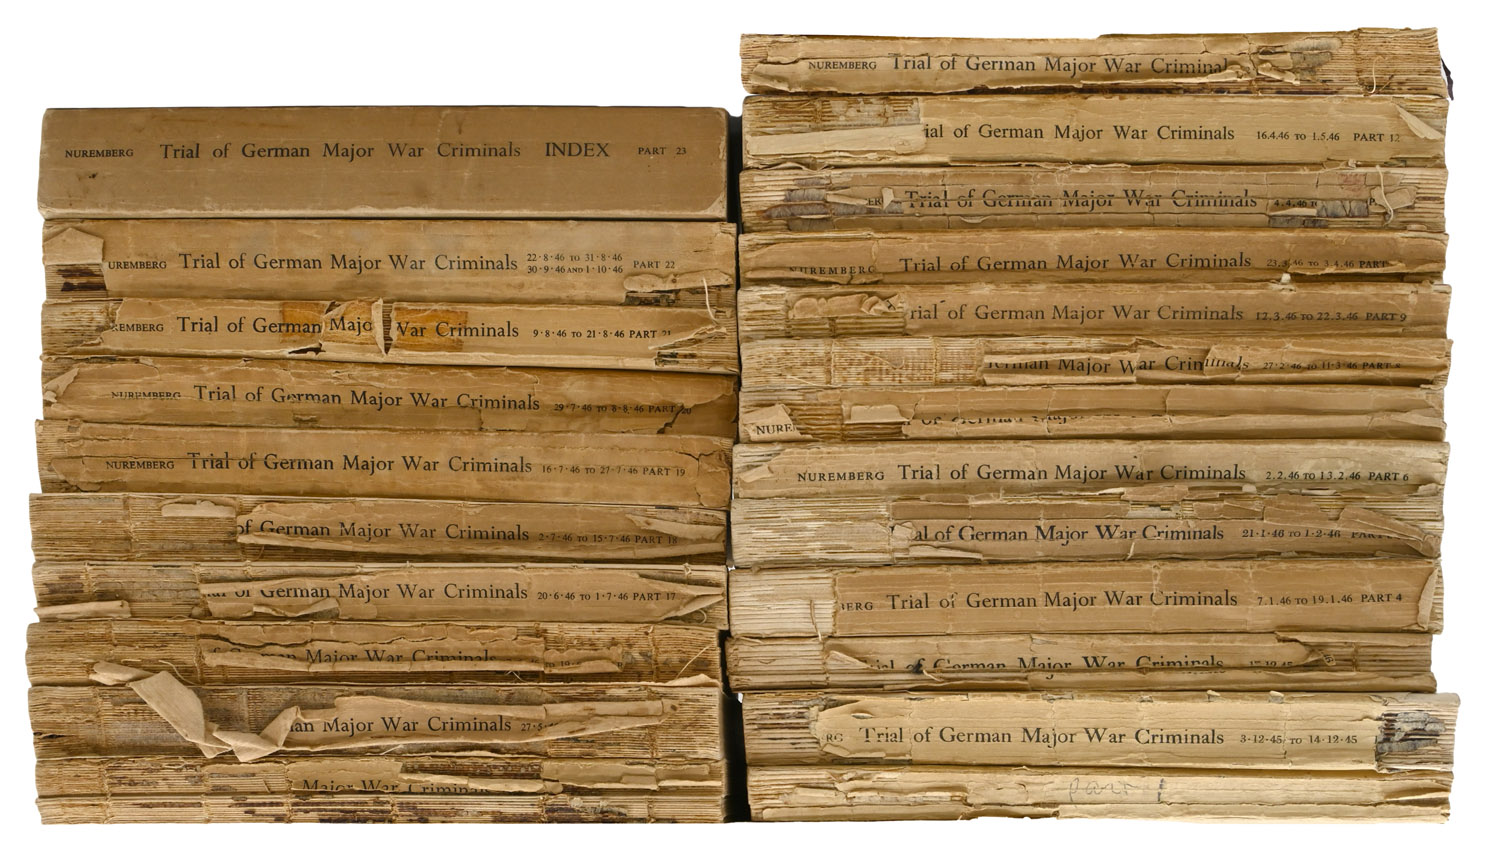 NUREMBERG Trial of German Major War Criminals INDEX PART 23
UREMBERG Trial of German Major War Criminals 22·8·46 TO 31·8·46 30·9·46 AND 1·10·46 PART 22
REMBERG Trial of German Majo War Criminals 9·8·46 TO 21·8·46 PART 21
NUREMBERG Trial of German Major War Criminals 29·7·46 TO 8·8·46 PART 20
NUREMBERG Trial of German Major War Criminals 16·7·46 TO 27·7·46 PART 19
of German Major War Criminals 2·7·46 TO 15·7·46 PART 18
of German Major War Criminals 20·6·46 TO 1·7·46 PART 17
of German Major War Criminals TO
an Major War Criminals 27·5
Major War Criminals
NUREMBERG Trial of German Major War Criminal
ial of German Major War Criminals 16.4.46 TO 1.5.46 PART 12
Trial of German Major War Criminals 4.4.46
NUREMBERG Trial of German Major War Criminals 23.3.46 TO 3.4.46 PART
rial of German Major War Criminals 12.3.46 TO 22.3.46 PART 9
German Major War Criminals 27·2·46 TO 11·3·46 PART 8
NURE of German Major
NUREMBERG Trial of German Major War Criminals 2.2.46 TO 13.2.46 PART 6
al of German Major War Criminals 21·1·46 TO 1·2·46 PART
BERG Trial of German Major War Criminals 7.1.46 TO 19.1.46 PART 4
ial of German Major War Criminals
RG Trial of German Major War Criminals 3·12·45 TO 14·12·45
Part 1